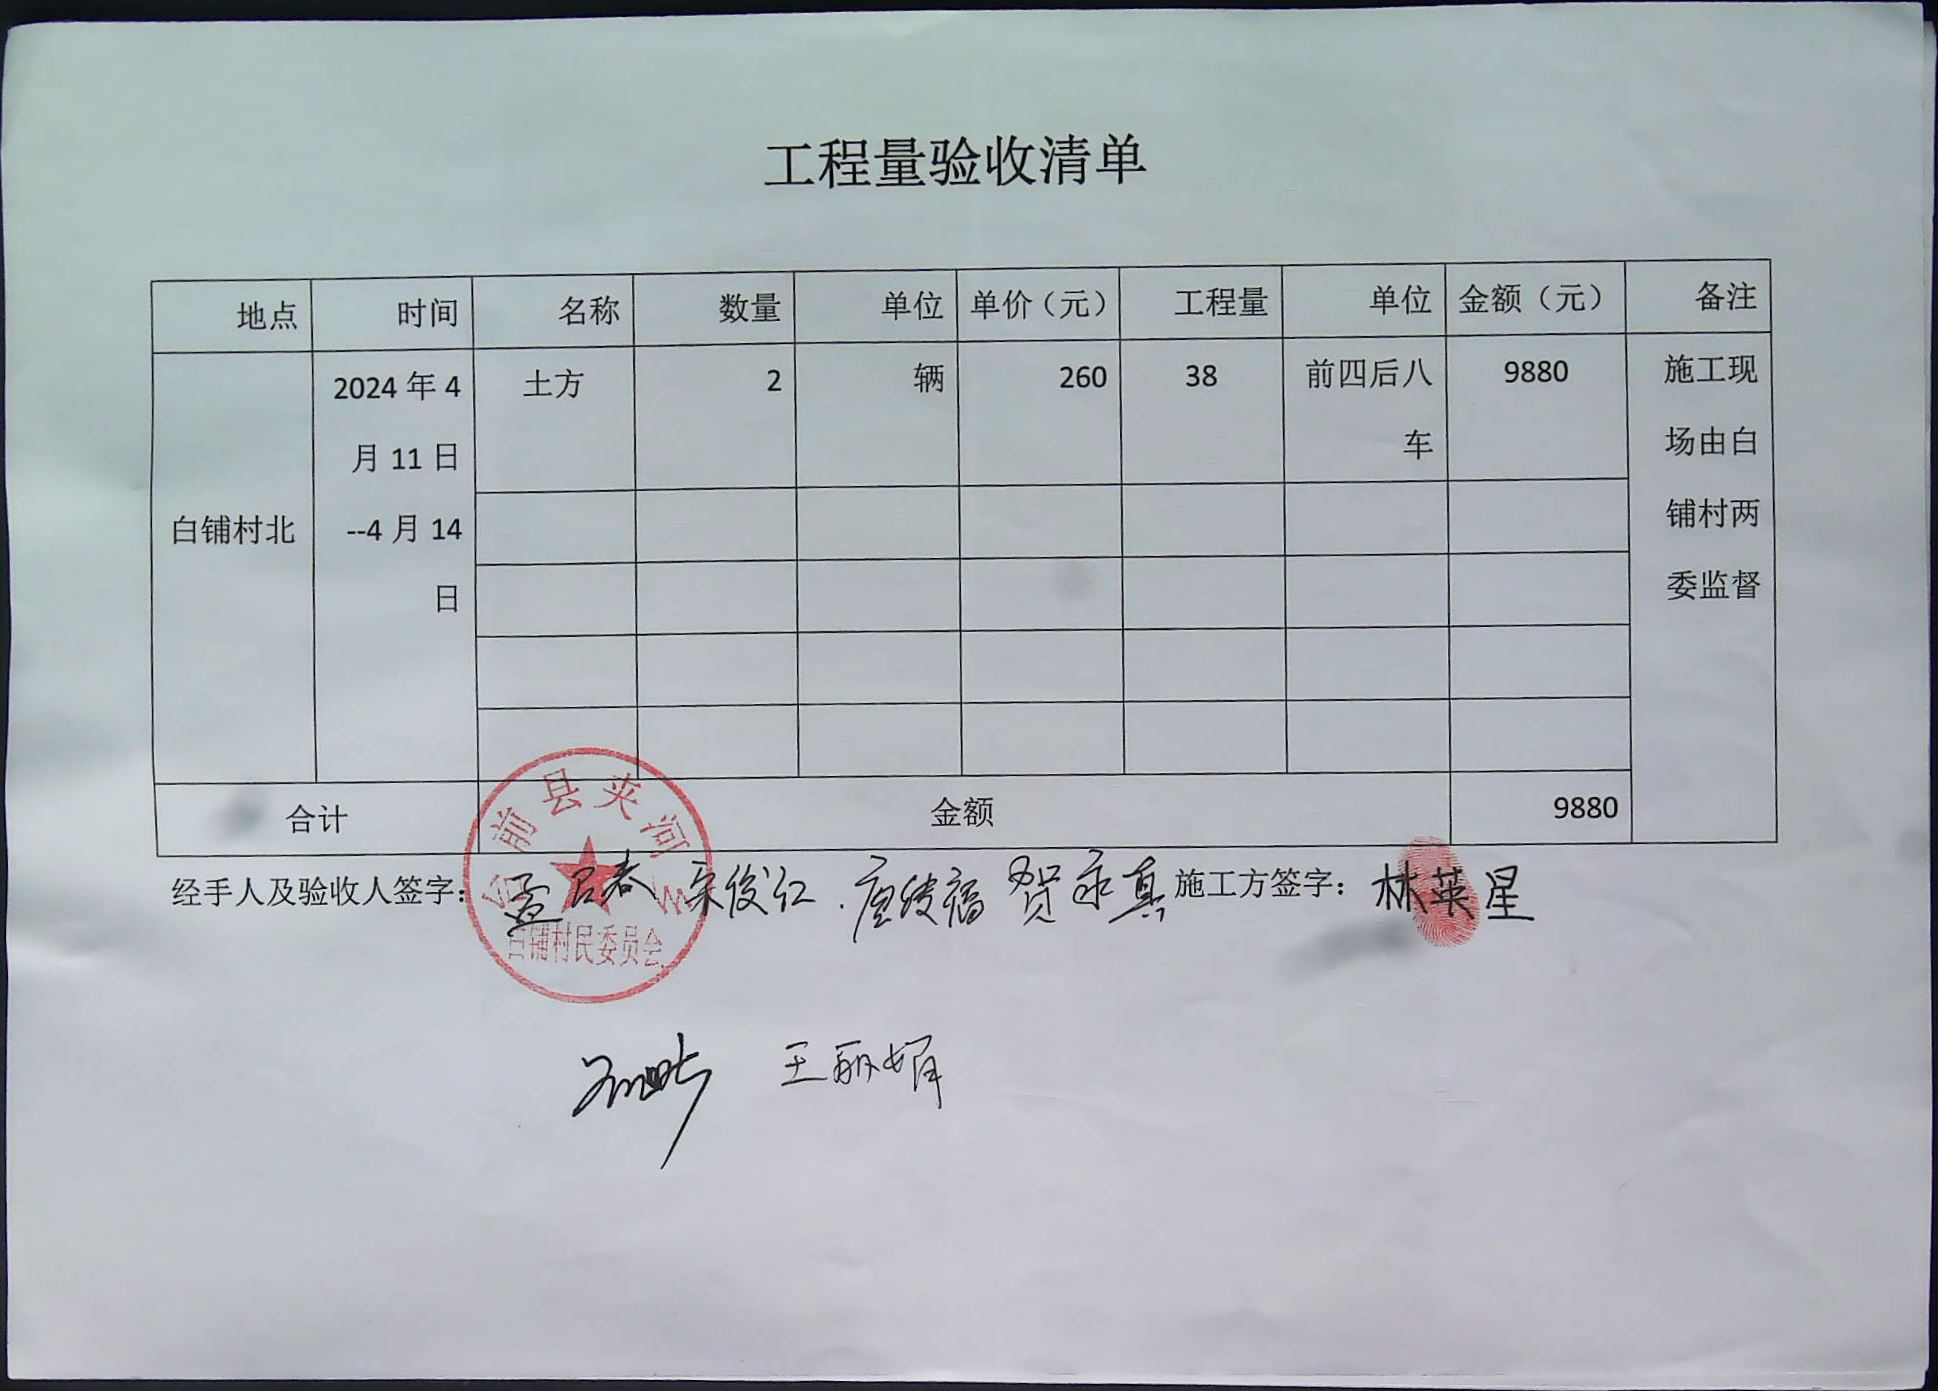 工程量验收清单
地点 时间 名称 数量 单位 单价（元） 工程量 单位 金额（元） 备注
白铺村北 2024年4月11日--4月14日 土方 2 辆 260 38 前四后八车 9880 施工现场由白铺村两委监督
合计 金额 9880
经手人及验收人签字： 宋俊红 贺永真 施工方签字： 林英星
台前县夹河乡
白铺村民委员会
王丽娟